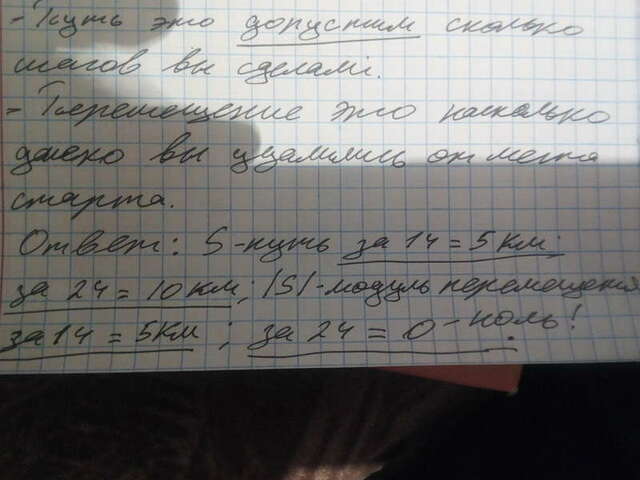 - Путь это допустим сколько
шагов вы сделали.
- Перемещение это насколько
далеко вы удалились от места
старта.
Ответ: S-путь за 1ч = 5 км;
за 2ч = 10 км; |S|-модуль перемещения
за 1ч = 5км ; за 2ч = 0 - ноль!